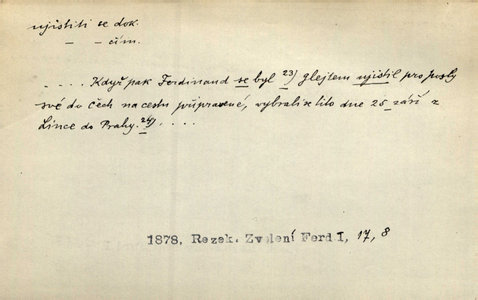 ujistiti se dok.
— — čím.
.... Když pak Ferdinand se byl 23) glejtem ujistil pro posly
své do Čech na cestu připravené, vybrali se tito dne 25 září z
Lince do Prahy. 24) ....
1878, Rezek. Zvolení Ferd I, 17, 8